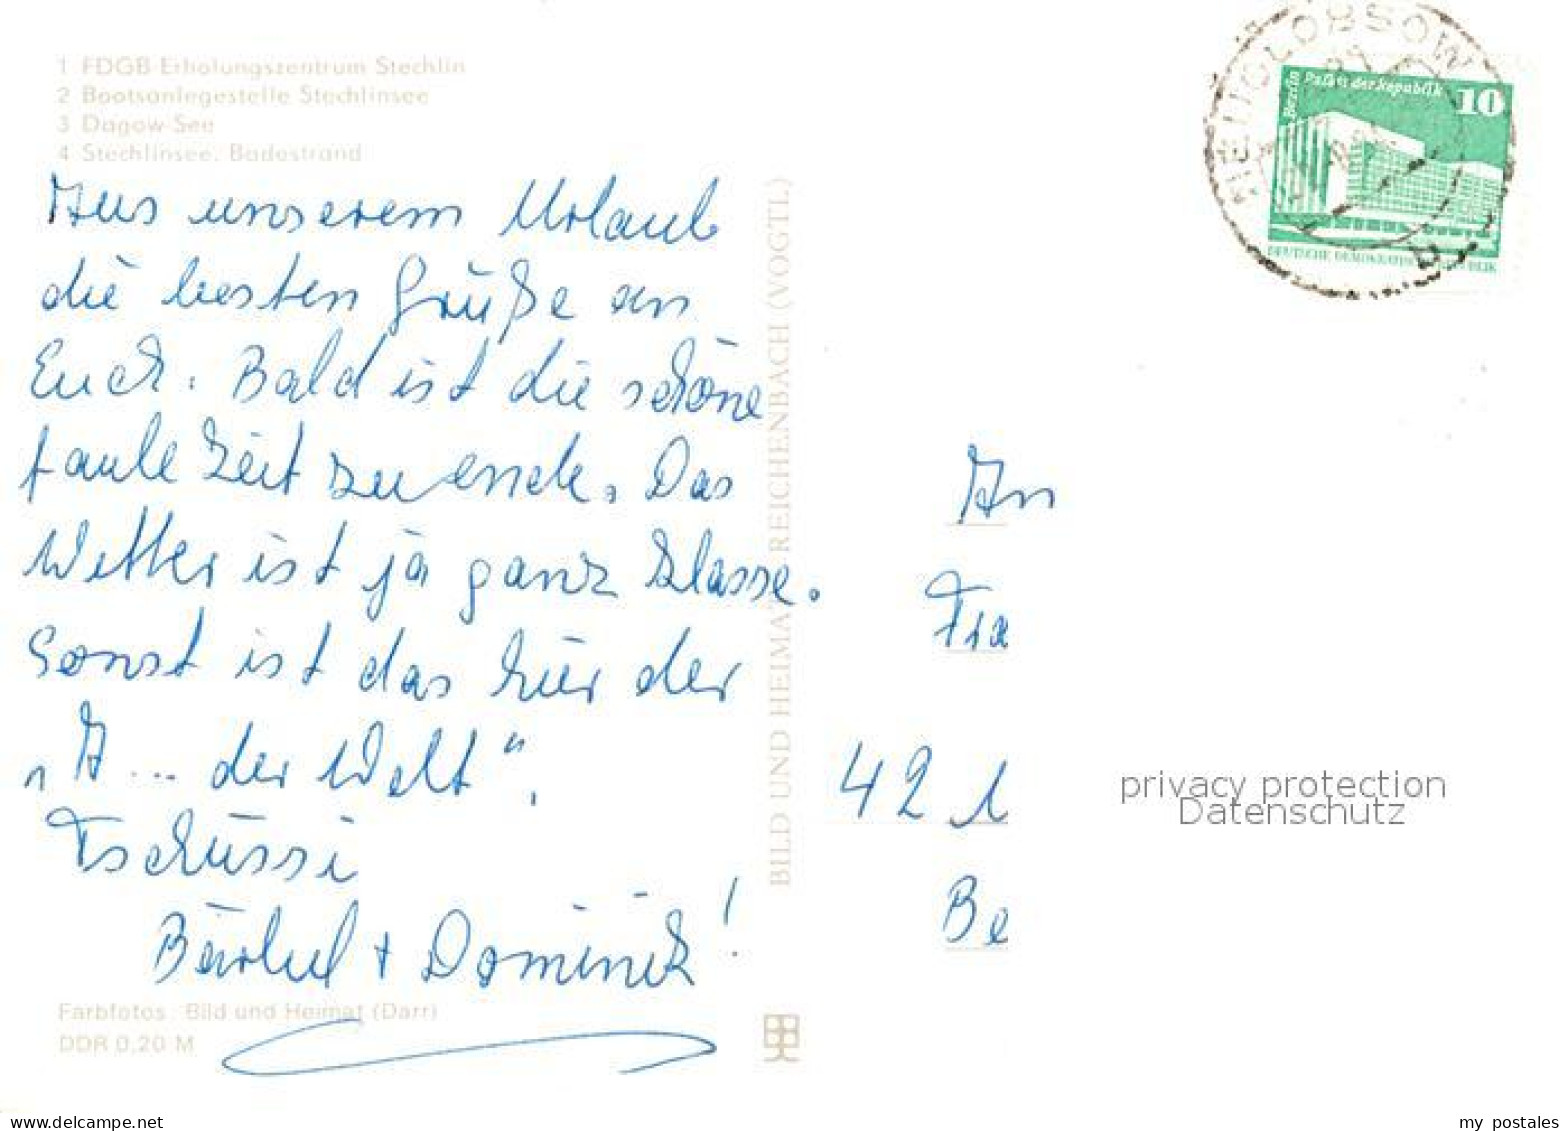 1 FDGB-Erholungszentrum Stechlin
2 Bootsanlegestelle Stechlinsee
3 Dagow-See
4 Stechlinsee, Badestrand
Aus unserem Urlaub
die besten Grüße an
Euch. Bald ist die schöne
faule Zeit zu ende. Das
Wetter ist ja ganz klasse.
Sonst ist das hier der
„A... der Welt“.
Tschüssi
Bärbel + Dominik!
Farbfotos: Bild und Heimat (Darr)
DDR 0,20 M
BILD UND HEIMAT REICHENBACH (VOGTL)
NEUGLOBSOW
Berlin Palast der Republik
10
DEUTSCHE DEMOKRATISCHE REPUBLIK
An
Fra
42 1
Be
privacy protection
Datenschutz
delcampe.net
my_postales